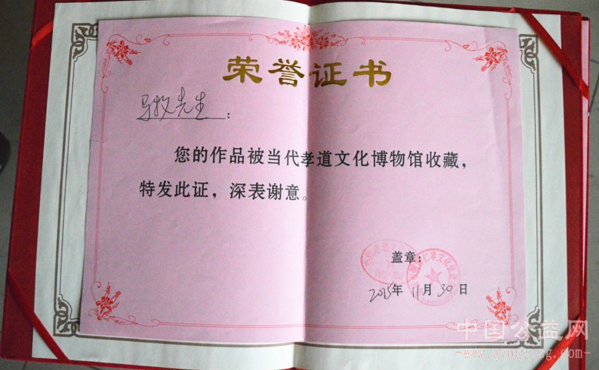 荣誉证书
牧先生：
您的作品被当代孝道文化博物馆收藏，
特发此证，深表谢意。
盖章：
2015年11月30日
中国公益网